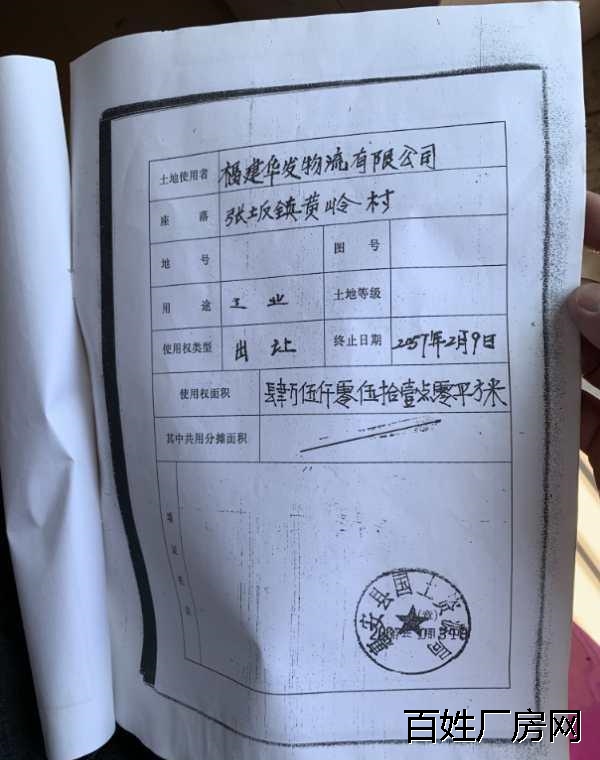 土地使用者 福建华发物流有限公司
座落 张坂镇黄岭村
地号 图号
用途 工业 土地等级
使用权类型 出让 终止日期 2057年2月9日
使用权面积 肆万伍仟零伍拾壹点零平方米
其中共用分摊面积
填证机关
惠安县国土资源局
(章)
百姓厂房网